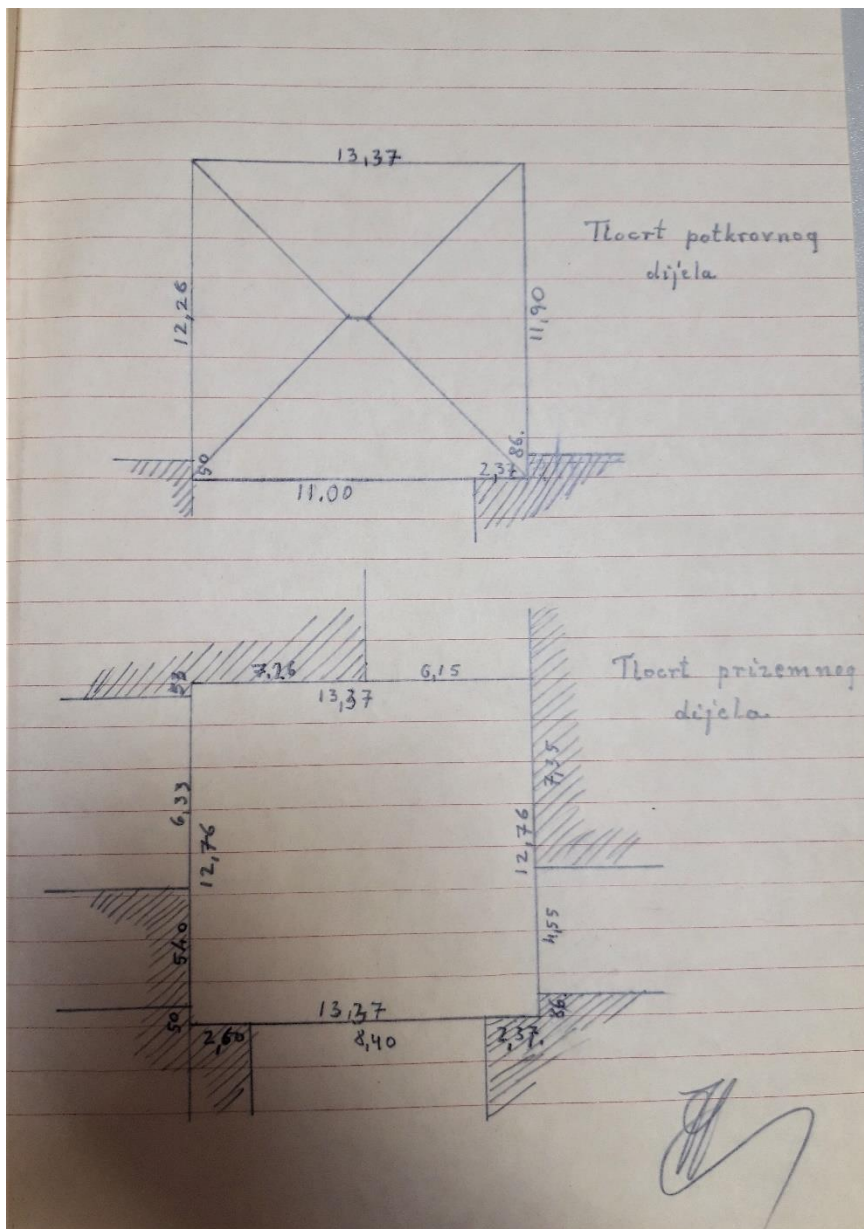 13,37
Tlocrt potkrovnog
dijela
12,26
11,90
50
86.
2,37
11.00
53
7,26
6,15
13,37
Tlocrt prizemnog
dijela.
7,35
6,33
12,76
12,76
5,40
4,55
50
13,37
86.
2,60
8,40
2,37.